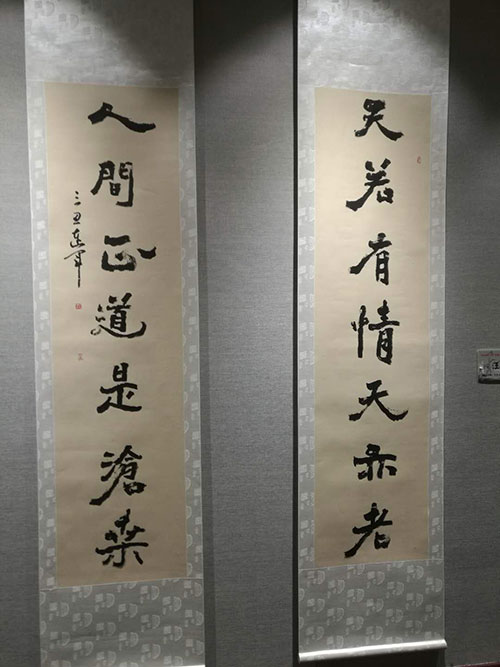 天若有情天亦老
人間正道是滄桑